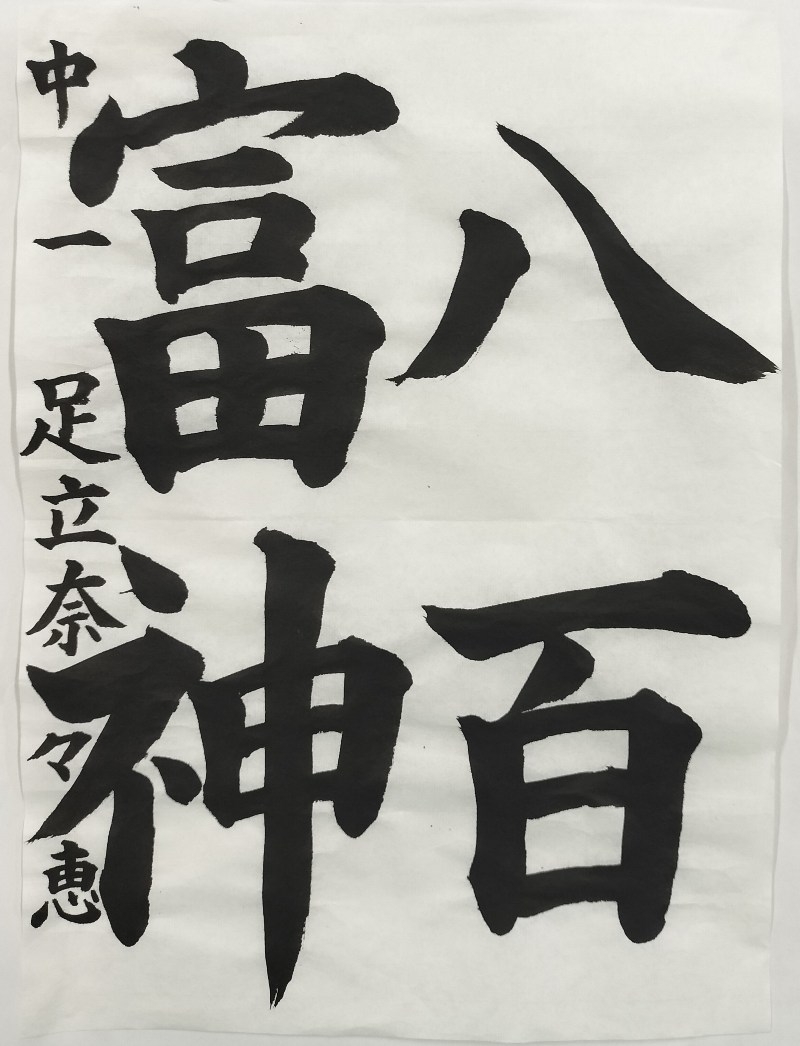 八百
富神
中一 足立奈々恵